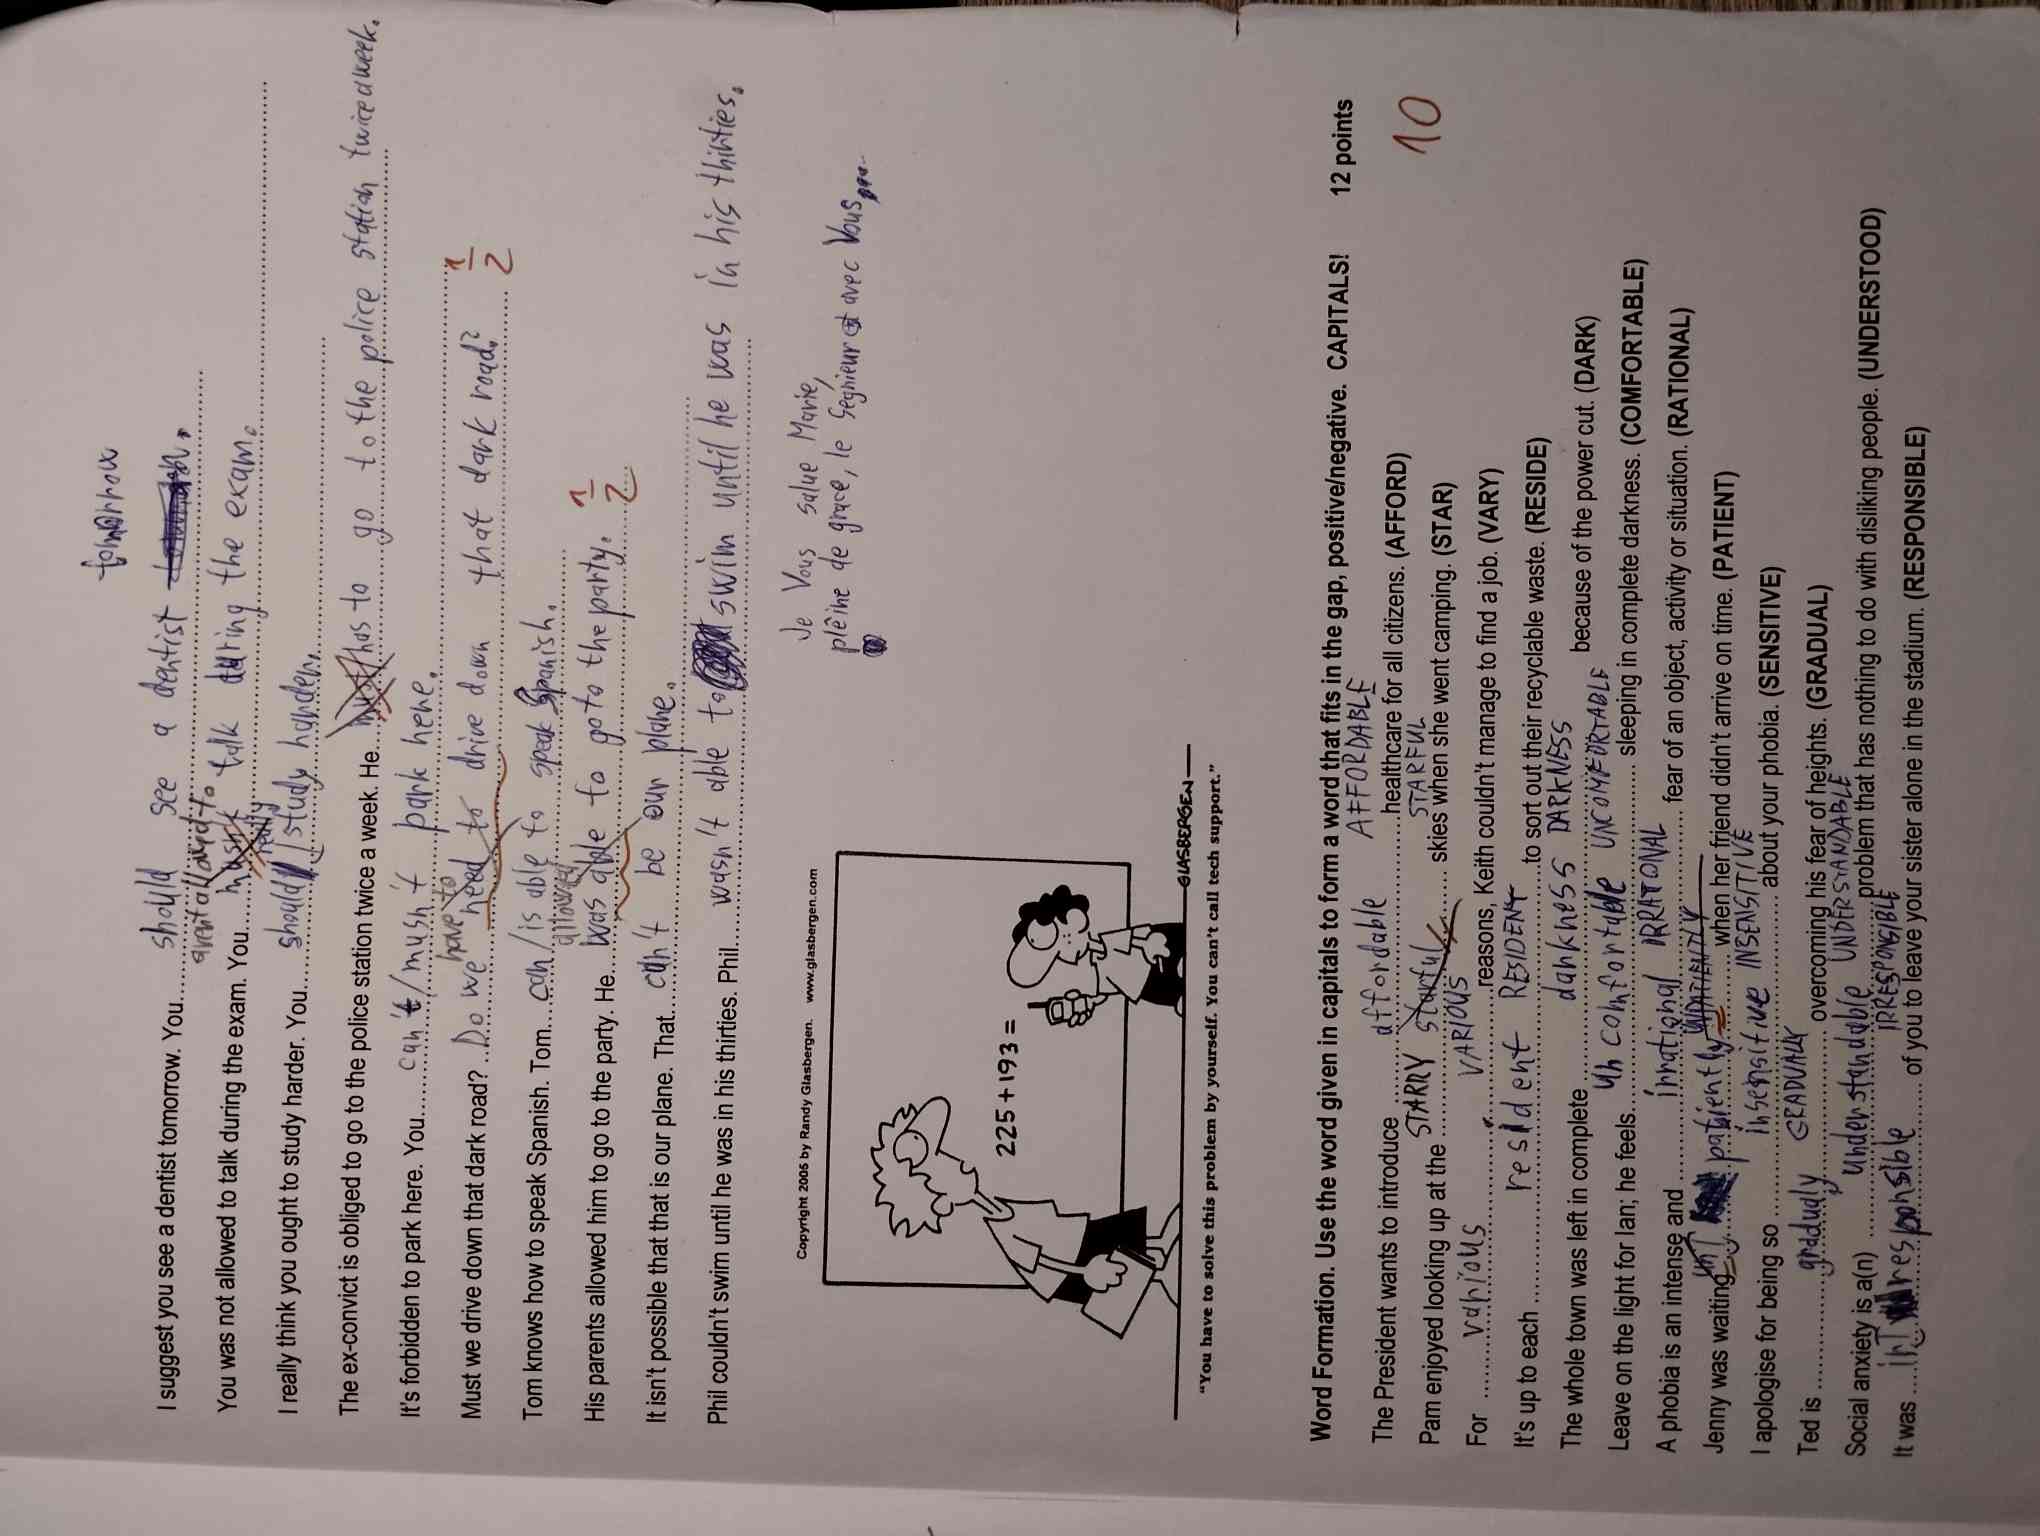 tomorrow
I suggest you see a dentist tomorrow. You.....should see a dentist
arent allowed to
You was not allowed to talk during the exam. You.....mush't talk during the exam.
really
I really think you ought to study harder. You.....should study harder.
The ex-convict is obliged to go to the police station twice a week. He.....must/has to go to the police station twice a week.
It's forbidden to park here. You.....can't/mush't park here.
have to
Must we drive down that dark road? ..Do we need to drive down that dark road? 1/2
Tom knows how to speak Spanish. Tom....can/is able to speak Spanish.
allowed
His parents allowed him to go to the party. He.....was able to go to the party. 1/2
It isn't possible that that is our plane. That...can't be our plane.
Phil couldn't swim until he was in his thirties. Phil.....wasn't able to swim until he was in his thirties.
Je Vous salue Marie,
plêine de grace, le Segnieur est avec Vous....
Copyright 2005 by Randy Glasbergen. www.glasbergen.com
225+193=
GLASBERGEN
"You have to solve this problem by yourself. You can't call tech support."
Word Formation. Use the word given in capitals to form a word that fits in the gap, positive/negative. CAPITALS! 12 points
10
The President wants to introduce .....affordable AFFORDABLE.....healthcare for all citizens. (AFFORD)
Pam enjoyed looking up at the STARRY starful STARFUL ..... skies when she went camping. (STAR)
For .....various VARIOUS.....reasons, Keith couldn't manage to find a job. (VARY)
It's up to each .....resident RESIDENT.....to sort out their recyclable waste. (RESIDE)
The whole town was left in complete .....darkness DARKNESS..... because of the power cut. (DARK)
Leave on the light for Ian; he feels.....uncomfortable UNCOMFORTABLE..... sleeping in complete darkness. (COMFORTABLE)
A phobia is an intense and .....irrational IRRATONAL..... fear of an object, activity or situation. (RATIONAL)
Jenny was waiting un patiently UNPATIENTLY..... when her friend didn't arrive on time. (PATIENT)
I apologise for being so .....insensitive INSENSITIVE..... about your phobia. (SENSITIVE)
Ted is .....gradualy GRADUALLY..... overcoming his fear of heights. (GRADUAL)
Social anxiety is a(n) .....understandable UNDERSTANDABLE.....problem that has nothing to do with disliking people. (UNDERSTOOD)
It was ....irresponsible IRRESPONSIBLE..... of you to leave your sister alone in the stadium. (RESPONSIBLE)